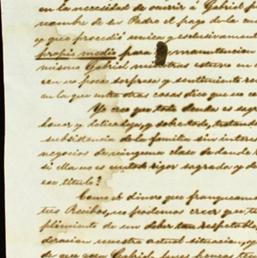 en la necesidad de ocurrir á Gabriel p
nombre de su Padre el pago de la cu
y que procedió única y exclusivament
propio medio para la manutencion
mismo Gabriel mientras estuvo en
con no poca sorpresa y sentimiento
en la que entre otras cosas dice que no co
Yo creo que toda deuda es sagra
honor y delicadeza, y sobretodo, tratando
subsistencia de la familia sin interes
negocios de ninguna clase de donde
si ella no es en todo rigor sagrada y de
con título?
Como le dimos que franqueamo
tres Recibos, no podemos creer que
plimiento de un deber tan respetable
deracion nuestra actual situacion, y